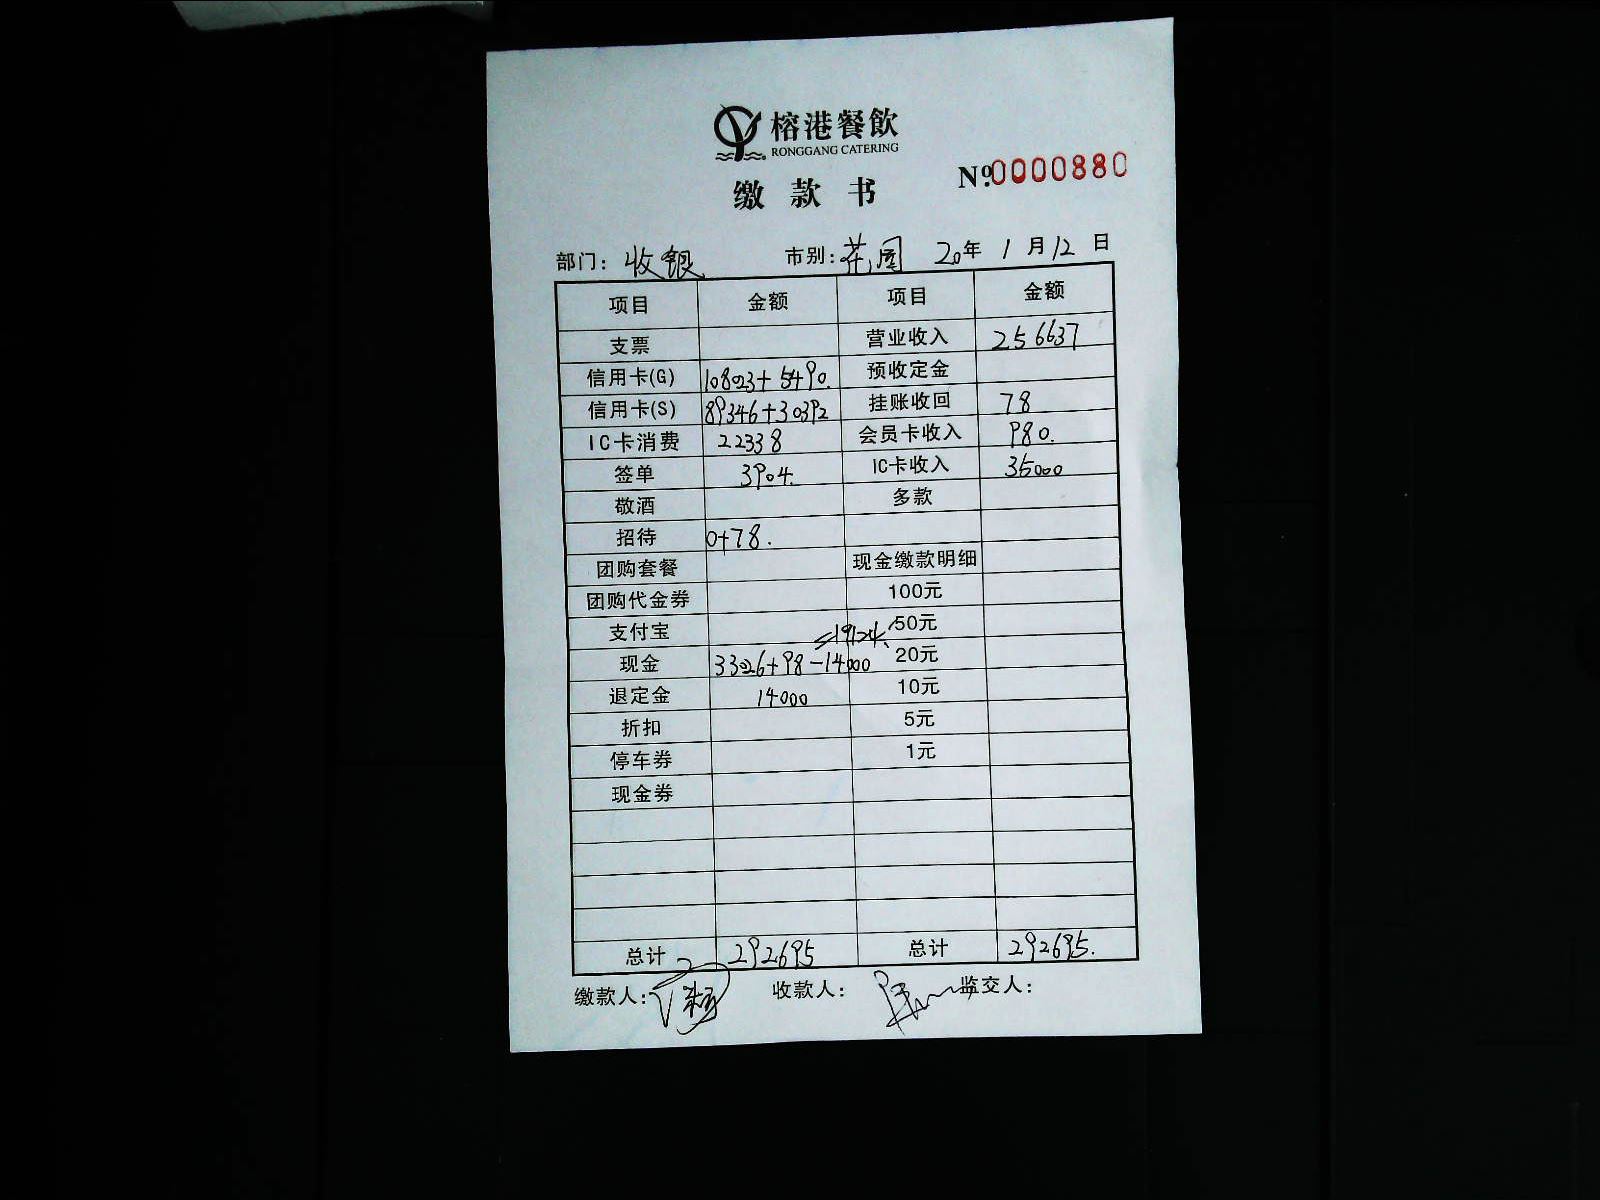 榕港餐飲
RONGGANG CATERING
缴款书
Nº.0000880
部门：收银 市别：花园 20年1月12日
项目 金额 项目 金额
支票 营业收入 256637
信用卡(G) 108023+5490. 预收定金
信用卡(S) 89346+30392 挂账收回 78
IC卡消费 22338 会员卡收入 980.
签单 3904. IC卡收入 35000
敬酒 多款
招待 0+78.
团购套餐 现金缴款明细
团购代金券 100元
支付宝 =19124. 50元
现金 33026+98-14000 20元
退定金 14000 10元
折扣 5元
停车券 1元
现金券
总计 292695 总计 292695.
缴款人： 收款人： 监交人：